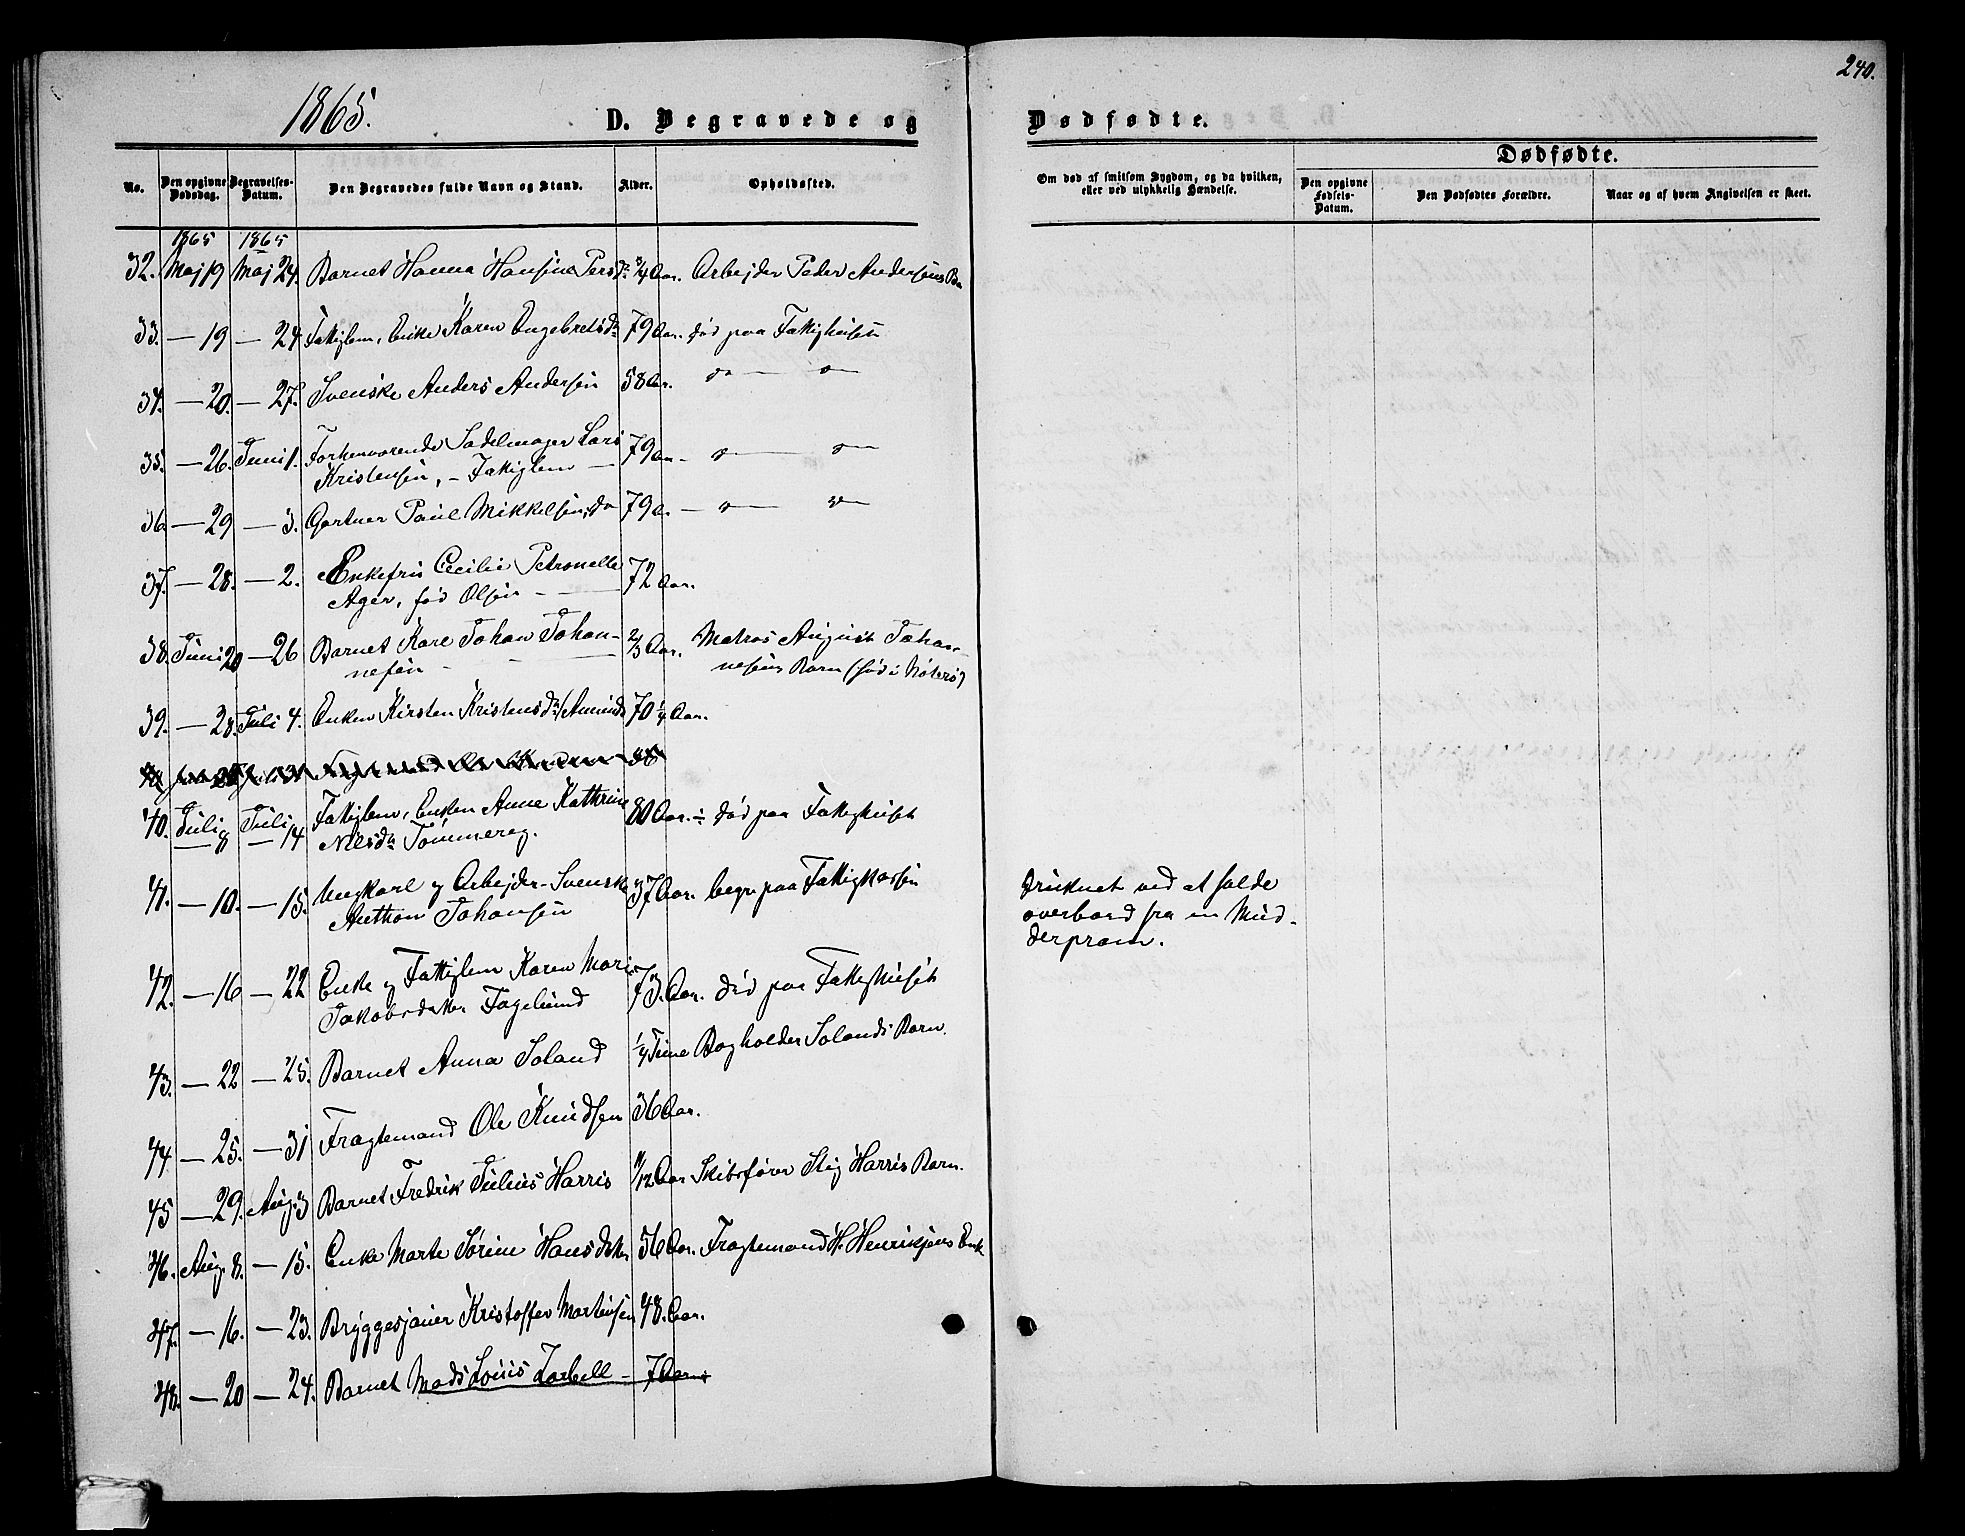 240.
1865.
D. Begravede og Dødfødte.
No.
Den opgivne Dødsdag.
Begravelses-Datum.
Den Begravedes fulde Navn og Stand.
Alder.
Opholdssted.
Om død af smitsom Sygdom, og da hvilken, eller ved ulykkelig Hændelse.
Dødfødte.
Den opgivne Fødsels-Datum.
Den Dødfødtes Forældre.
Naar og af hvem Angivelsen er skeet.
1865 1865
32. Maj 19 Maj 24. Barnet Hanna Hansine Persd: 3/4 Aar. Arbejder Peder Andersens Bn
33. — 19 — 24 Fattiglem, Enke Karen Engebretsdr 79 Aar. død paa Fattighuset
34. — 20. — 27. Svenske Anders Andersen 58 Ar. do — o —
35. — 26. Juni 1. Forhenværende Sadelmager Lars
Kristensen, – Fattiglem — 79 Aar – o — o —
36 — 29 — 3. Gartner Paul Mikkelsen, do 79 A. — o — o —
37. — 28. — 2. Enkefru Cecilie Petronelle
Ager, fød Olsen — 72 Aar.
38. Juni 20 — 26 Barnet Karl Johan Johan-
nesen — 2/3 Aar. Matros August Johan-
nesens Barn (fød i Nøterø)
39. — 28. Juli 4. Enken Kirsten Kristensdr Amunds 70 1/4 Aar.
40. Juli 8 Juli 14 Fattiglem, Enken Anne Kathrine
Nilsdr Tømmereg. 80 Aar. død paa Fattighuset
41. — 10. — 15. Ungkarl og Arbejder – Svenske
Anthon Johansen 37 Aar. begr. paa Fattigkassen
Druknet ved at falde
overbord fra en Mud-
derpram.
42. — 16 — 22 Enke og Fattiglem Karen Marie
Jakobsdatter Fagelund 73. Aar. død paa Fattighuset
43. — 22 — 25. Barnet Anna Soland 1/4 Time Bogholder Solands Barn.
44 — 25. — 31 Fragtemand Ole Knudsen 36 Aar.
45 — 29. Aug. 3 Barnet Fredrik Julius Harris 11/12 Aar Skibsfører Stig Harris Barn.
46. Aug. 8. — 15. Enke Marte Sørine Hansdatter 56 Aar. Fragtemand H. Henriksens Enke
47. — 16. — 23. Bryggesjauer Kristoffer Mortensen 48. Aar.
48. — 20 — 24. Barnet Mads Louis Zarbell — 7 Aar